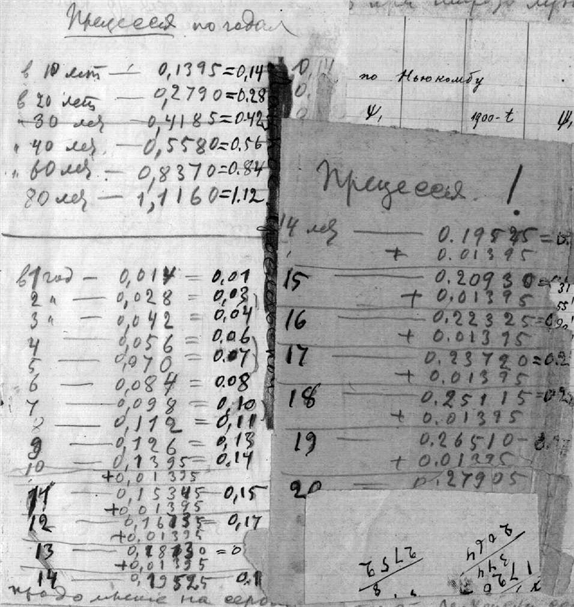 Прецессия по годам
в 10 лет — 0,1395=0,14
в 20 лет — 0,2790=0.28
" 30 лет — 0,4185=0.42
" 40 лет — 0,5580=0.56
" 60 лет — 0,8370=0.84
80 лет — 1,1160=1.12
в 1 год — 0,014 = 0,01
2 " — 0,028 = 0,03
3 " — 0,042 = 0,04
4 — 0,056 = 0,06
5 — 0,070 = 0,07
6 — 0,084 = 0,08
7 — 0,098 = 0,10
8 — 0,112 = 0,11
9 — 0,126 = 0,13
10 — 0,1395 = 0.14
+0,01395
11 — 0,15345 = 0,15
+0,01395
12 — = 0,17
+0,01395
13 —
+0,01395
14 —
на
по Ньюкомбу
ψ, 1900-t ψ,
Прецессия !
14 лет —
+ 0.01395
15 — 0.20930
+ 0.01395
16 — 0.22325
+ 0.01395
17 — 0.23720
+ 0.01395
18 — 0.25115
+ 0.01395
19 — 0.26510
+ 0.01395
20 — 0.27905
2752
2064